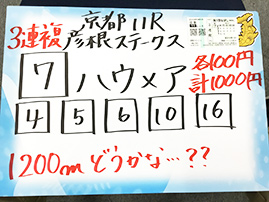 京都11R
3連複 彦根ステークス
7 ハウメア 各100円
計1000円
4 5 6 10 16
1200m どうかな…??